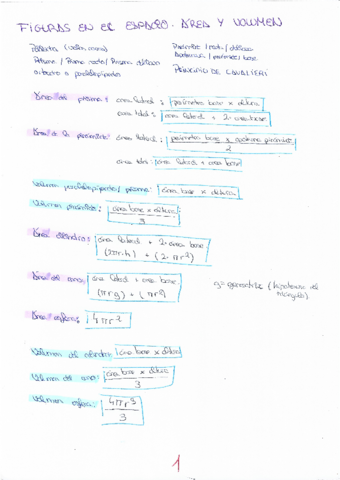 FIGURAS EN EL ESPACIO. ÁREA Y VOLUMEN
PRINCIPIO DE CAVALIERI
Área del prisma: área lateral: perímetro base x altura
área total: área lateral + 2 · área base
Área de la pirámide: área lateral: perímetro base x apotema pirámide
2
área total: área lateral + área base
Volumen paralelepípedo/prisma: área base x altura
Volumen pirámide: área base x altura
3
Área cilindro: área lateral + 2 · área base
(2πr·h) + (2·πr²)
Área del cono: área lateral + área base
(πrg) + (πr²)
g = generatriz (hipotenusa del triángulo)
Área esfera: 4πr²
Volumen del cilindro: área base x altura
Volumen del cono: área base x altura
3
Volumen esfera: 4πr³
3
1